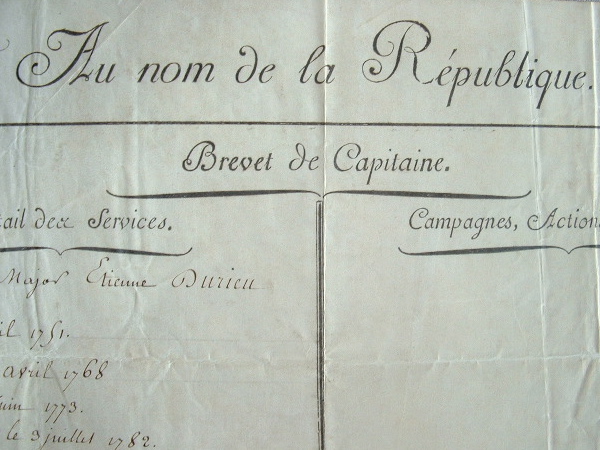 Au nom de la République.
Brevet de Capitaine.
tail des Services.
Campagnes, Action
Major Etienne Durieu
il 1751.
avril 1768
juin 1773.
le 3 juillet 1782.